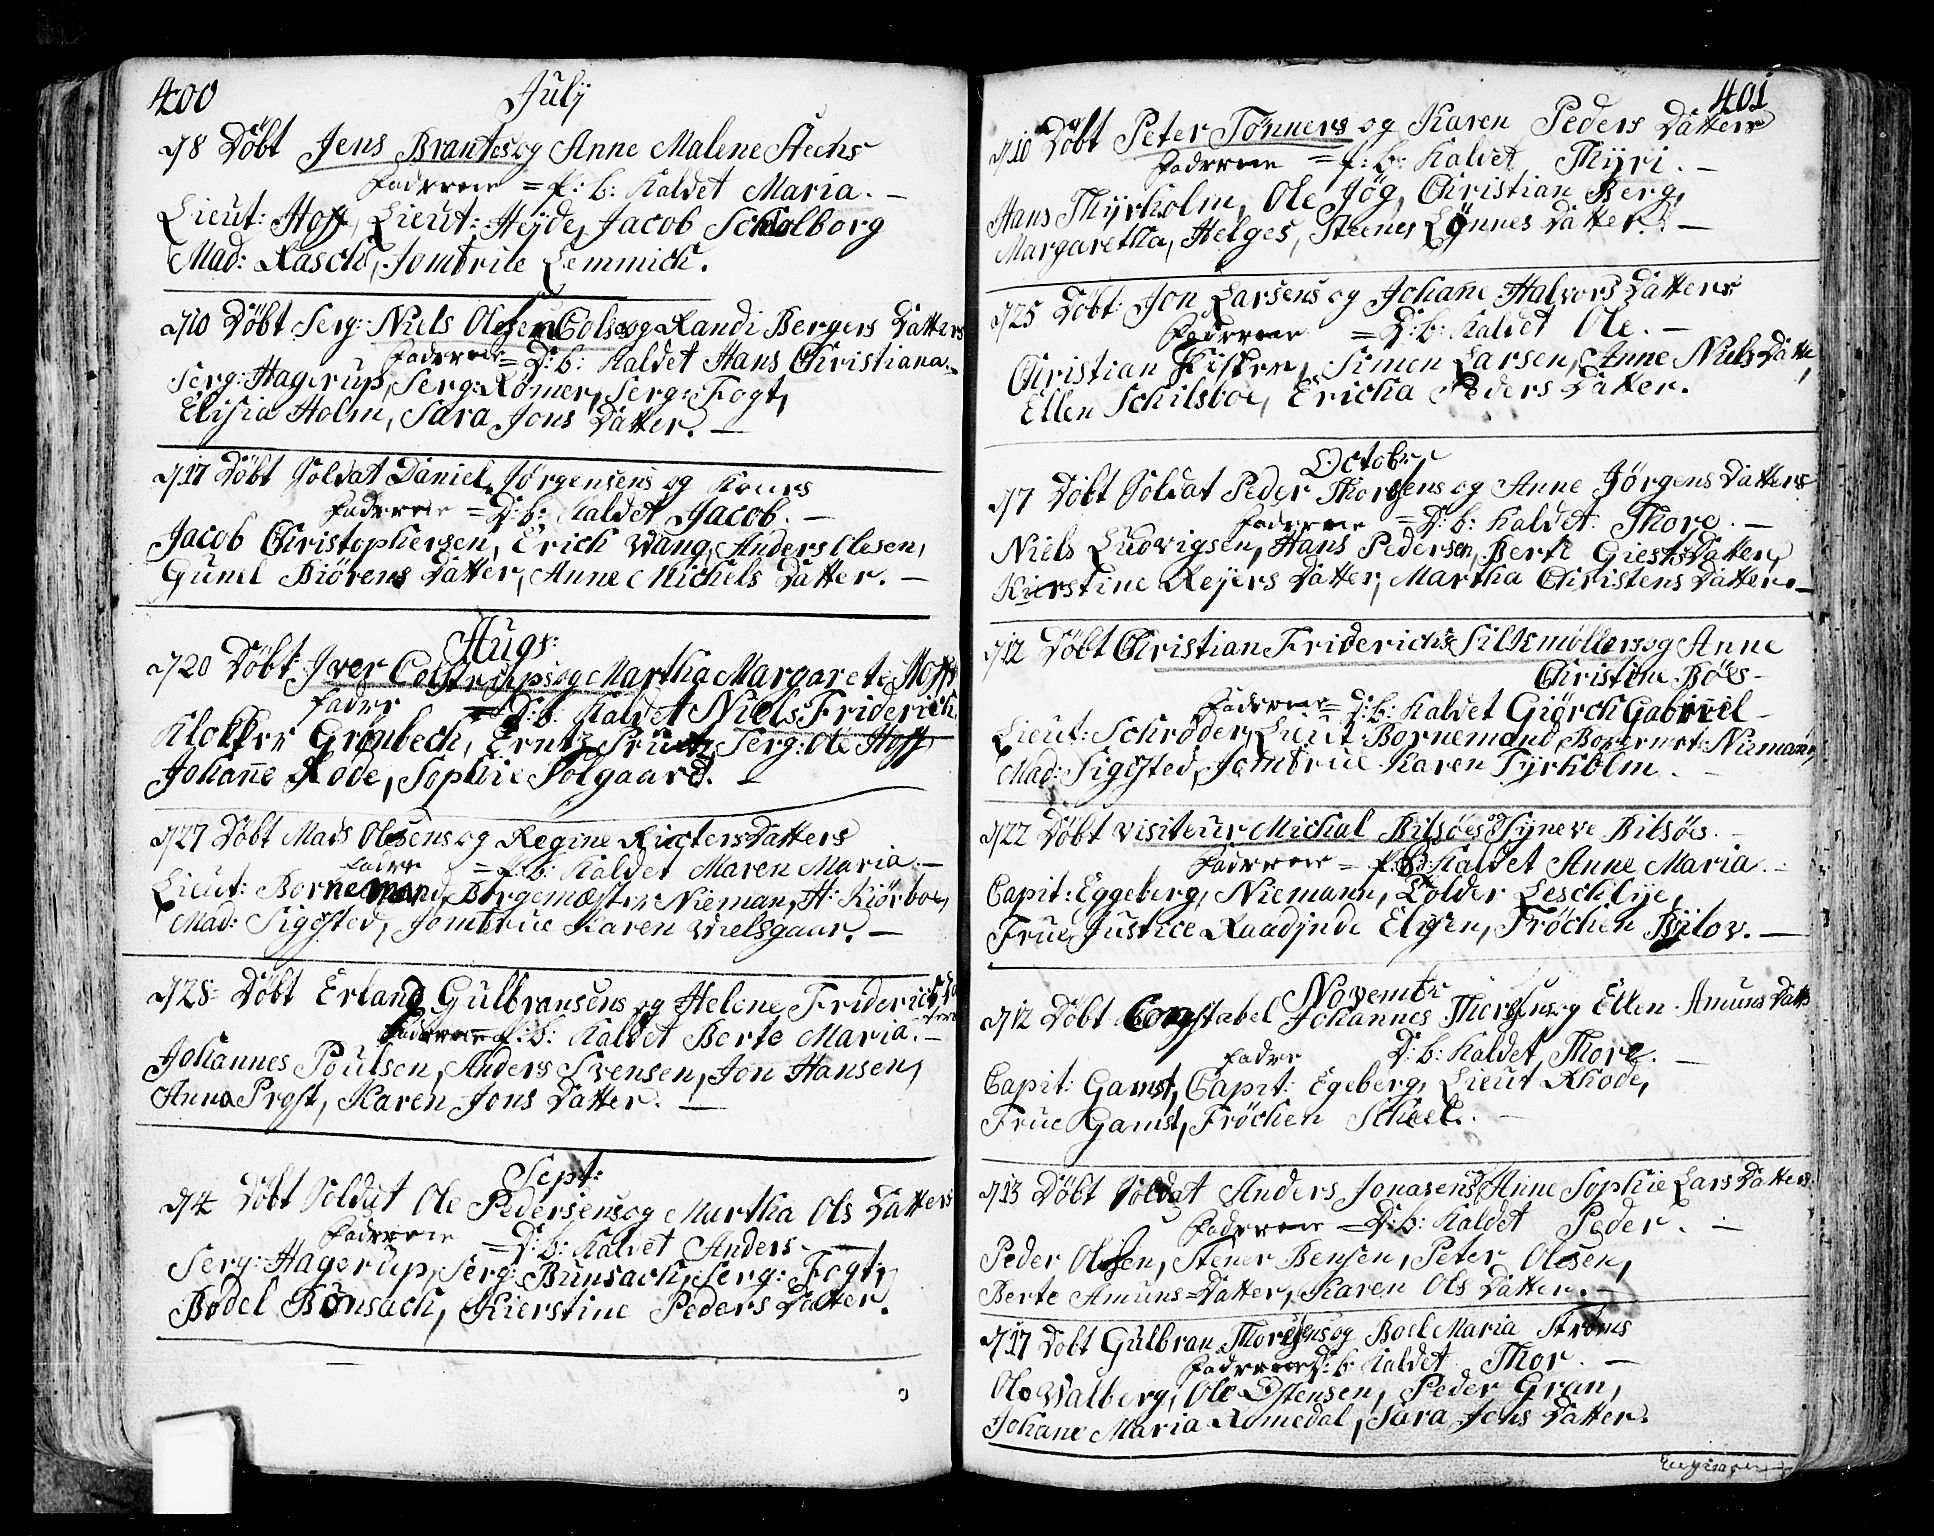 400 July
d/8 Döbt Jens Brantes og Anne Malene Steens
Faddrene = P: b: Kaldet Maria. —
Lieut: Hoff, Lieut: Heyde, Jacob Scholborg
Mad: Rasch, Jomfrue Lemmich.
d/10 Döbt Serg: Niels Olesen og Randi Bergers Datters
Faddrene = D: b: Kaldet Hans Christian
Serg: Hagerup, Serg: Romer, Serg: Fogt,
Elisia Holm, Sara Jons Datter. —
d/17 Döbt Soldat Daniel Jørgensens og
Faddrene = D: b: Kaldet Jacob. —
Jacob Christophersen, Erich Wang, Anders Olesen,
Gunel Biörens Datter, Anne Michels Datter. —
Augs:
d/20 Döbt Iver Colstrups og Martha Margarete Hoffs
Faddr D: b: Kaldet Niels Friderich
Klokker Grönbech, Serg: Ole Hoff
Johañe Rode, Sophie Solgaard. —
d/27 Döbt Mads Olesens og Regine Ricters Datters
Faddr = P: b: Kaldet Maren Maria. —
Lieut: Bornemand, Borgemæster Nieman, H: Kiörboe,
Mad: Sigsted, Jomfrue Karen Wielsgaar. —
d/28 Döbt Erland Gulbransens og Helene Friderichs Datters
Faddrene P: b: Kaldet Berte Maria. —
Johannes Poulsen, Anders Svensen, Jon Hansen,
Anna Prost, Karen Jons Datter. —
Sept:
d/4 Döbt Soldat Ole Pedersens og Martha Ols Datters
Faddrene = D: b: Kaldet Anders —
Serg: Hagerup, Serg: Bunsach, Serg: Fogt,
Bodel Bonsach, Kierstine Peders Datter.
401
d/10 Döbt Peter Tönners og Karen Peders Datters
Faddrene = P: b: Kaldet Thyri. —
Hans Thyrholm, Ole Jög, Christian Berg,
Margaretha, Helges, Steenes Lönnes Datter. —
d/25 Döbt Jon Larsens og Johañe Halvors Datters
Faddrene = D: b: Kaldet Ole. —
Christian Simen Larsen, Anne Niels Datter,
Ellen Schilsboe, Ericha Peders Datter.
Octobr
d/7 Döbt Soldat Peder Thorsens og Anne Jörgens Datters
Faddrene = D: b: Kaldet Thore. —
Niels Ludvigsen, Hans Pedersen, Berte Giests Datter,
Kierstine Reyers Datter, Martha Christens Datter. —
d/12 Döbt Christian Friderichs Siltsmöllers og Anne
Christine Böes —
Faddrene = D: b: Kaldet Giörch Gabriel —
Lieut: Schröder, Lieut: Bornemand, Borgermst: Niemann,
Mad: Sigsted, Jomfrue Karen Tyrholm. —
d/22 Döbt Visiteur Michal Bilsöes og Syneve Bilsöes. —
Faddrene = P: b: Kaldet Anne Maria. —
Capit: Eggeberg, Niemann, Tolder Leschlye,
Frue Justice Raadinde Elysen, Fröchen Bylov. —
Novembr
d/12 Döbt Constabel Johannes Thorsens og Ellen Amuns Datters
Faddre D: b: Kaldet Thore. —
Capit: Gamst, Capit: Egeberg, Lieut Rhode,
Frue Gamst, Fröchen Scheel. —
d/13 Döbt Soldat Anders Jonasens Anne Sophie Lars Datters
Faddrene = D: b: Kaldet Peder. —
Peder Olesen, Stener Bensen, Peter Olesen,
Berte Amuns Datter, Karen Ols Datter. —
d/17 Döbt Gulbran Thoresens og Boel Maria Ströms
Faddrene D: b: Kaldet Thor. —
Ole Walberg, Ole Ostensen, Peder Gran,
Johane Maria Romedal, Sara Jons Datter.